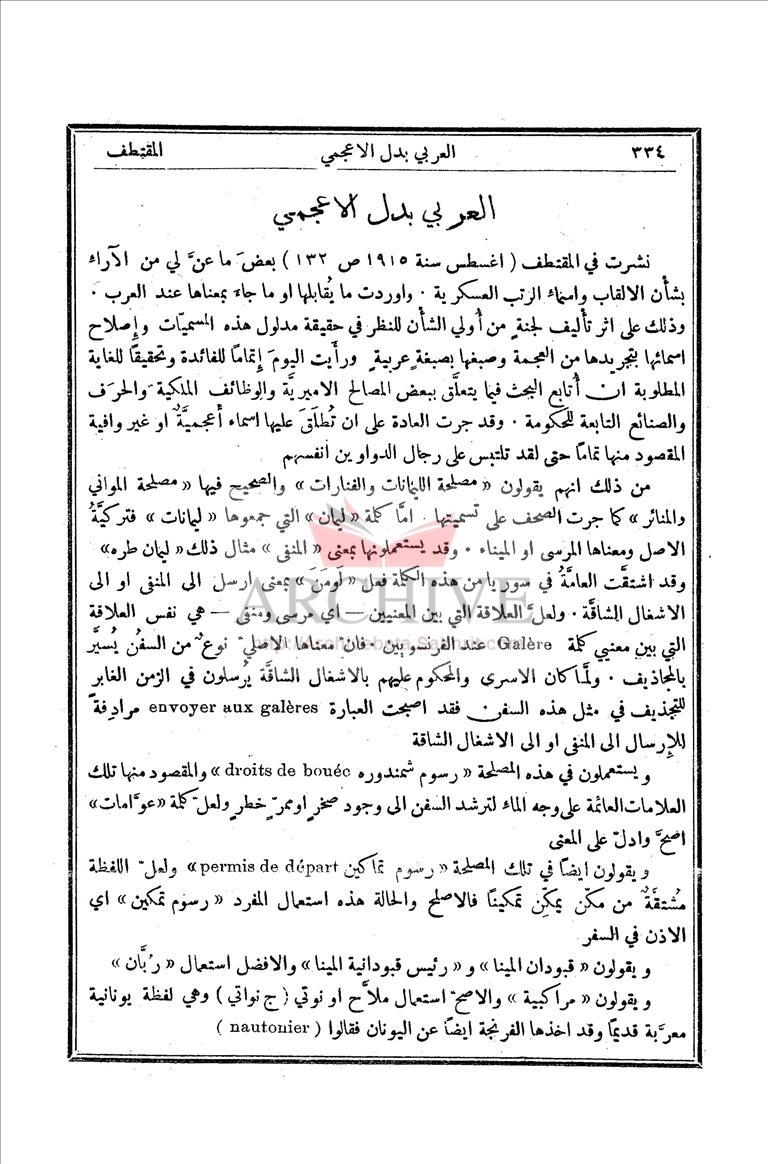 ٣٣٤ العربي بدل الاعجمي المقتطف
العربي بدل الاعجمي
نشرت في المقتطف ( اغسطس سنة ١٩١٥ ص ١٣٢ ) بعضَ ما عنَّ لي من الآراء
بشأن الالقاب واسماء الرتب العسكرية . واوردت ما يُقابلها او ما جاءَ بمعناها عند العرب .
وذلك على اثر تأليف لجنةٍ من أولي الشأن للنظر في حقيقة مدلول هذه المسميّات وإصلاح
اسمائها بتجريدها من العجمة وصبغها بصبغةٍ عربيةٍ ورأيت اليومَ إتمامًا للفائدة وتحقيقًا للغاية
المطلوبة ان أُتابع البحث فيما يتعلَّق ببعض المصالح الاميريَّة والوظائف الملكية والحرَف
والصنائع التابعة للحكومة . وقد جرت العادة على ان تُطلَقَ عليها اسماء أعجميَّةٌ او غير وافية
المقصود منها تمامًا حتى لقد تلتبس على رجال الدواوين انفسهم
من ذلك انهم يقولون « مصلحة الليمانات والفنارات » والصحيح فيها « مصلحة المواني
والمنائر » كما جرت الصحف على تسميتها . امَّا كلمة « ليمان » التي جمعوها « ليمانات » فتركيَّةُ
الاصل ومعناها المرسى او الميناء . وقد يستعملونها بمعنى « المنفى » مثال ذلك « ليمان طره »
وقد اشتقَّت العامَّةُ في سوريا من هذه الكلمة فعل « لَومَنَ » بمعنى ارسل الى المنفى او الى
الاشغال الشاقَّة . ولعلَّ العلاقة التي بين المعنيين — اي مرسى ومنفى — هي نفس العلاقة
التي بين معنيي كلمة Galère عند الفرنسويين . فانّ معناها الاصليّ نوعٌ من السفُن يُسيَّر
بالمجاذيف . ولمَّا كان الاسرى والمحكوم عليهم بالاشغال الشاقَّة يُرسلون في الزمن الغابر
للتجذيف في مثل هذه السفن فقد اصبحت العبارة envoyer aux galères مرادِفةً
للإرسال الى المنفى او الى الاشغال الشاقة
ويستعملون في هذه المصلحة « رسوم شمندوره droits de bouéc » والمقصود منها تلك
العلامات العائمة على وجه الماء لترشد السفن الى وجود صخرٍ او ممرّ خطرٍ ولعلّ كلمة « عوَّامات »
اصحّ وادلّ على المعنى
ويقولون ايضًا في تلك المصلحة « رسوم تماكين permis de départ » ولعلّ اللفظة
مُشتقَّةٌ من مكّن يمكّن تمكينًا فالاصلح والحالة هذه استعمال المفرد « رسوم تمكين » اي
الاذن في السفر
ويقولون « قبودان المينا » و « رئيس قبودانية المينا » والافضل استعمال « رُبَّان »
ويقولون « مراكبية » والاصحّ استعمال ملاَّح او نوتي ( ج نواتي ) وهي لفظة يونانية
معرَّبة قديمًا وقد اخذها الفرنجة ايضًا عن اليونان فقالوا ( nautonier )
ARCHIVE